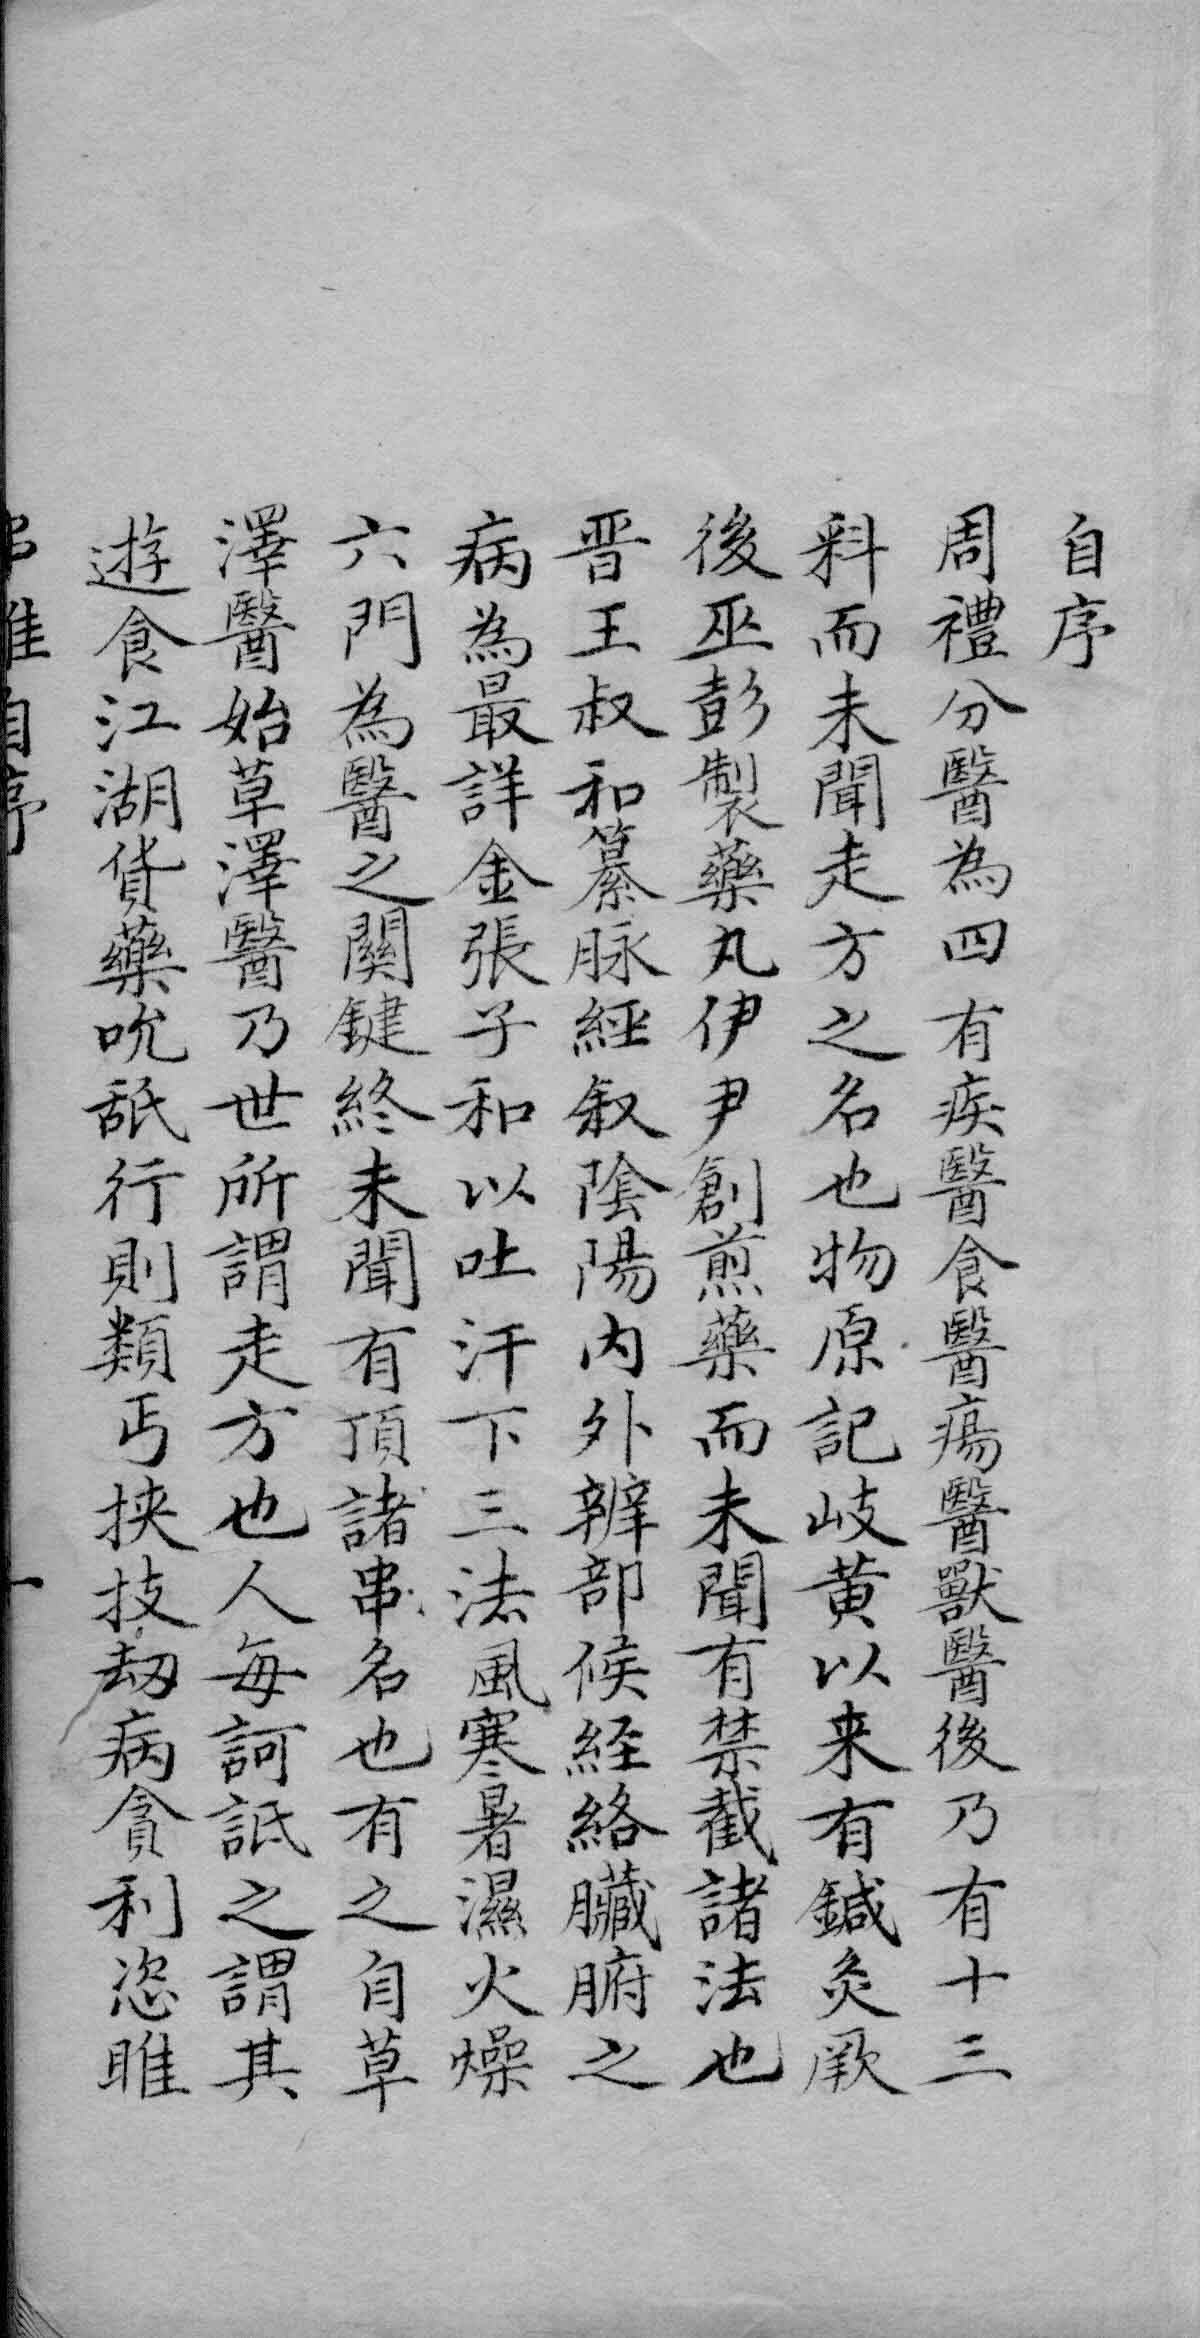 自序
周禮分醫為四有疾醫食醫瘍醫獸醫後乃有十三
科而未聞走方之名也物原記岐黃以来有鍼灸厥
後巫彭製藥丸伊尹創煎藥而未聞有禁截諸法也
晋王叔和纂脉經叙陰陽内外辨部候経絡臟腑之
病為最詳金張子和以吐汗下三法風寒暑濕火燥
六門為醫之關鍵終未聞有頂諸串名也有之自草
澤醫始草澤醫乃世所謂走方也人每訶詆之謂其
遊食江湖貨藥吮舐行則類丐挾技刼病貪利恣睢
串雅自序
一